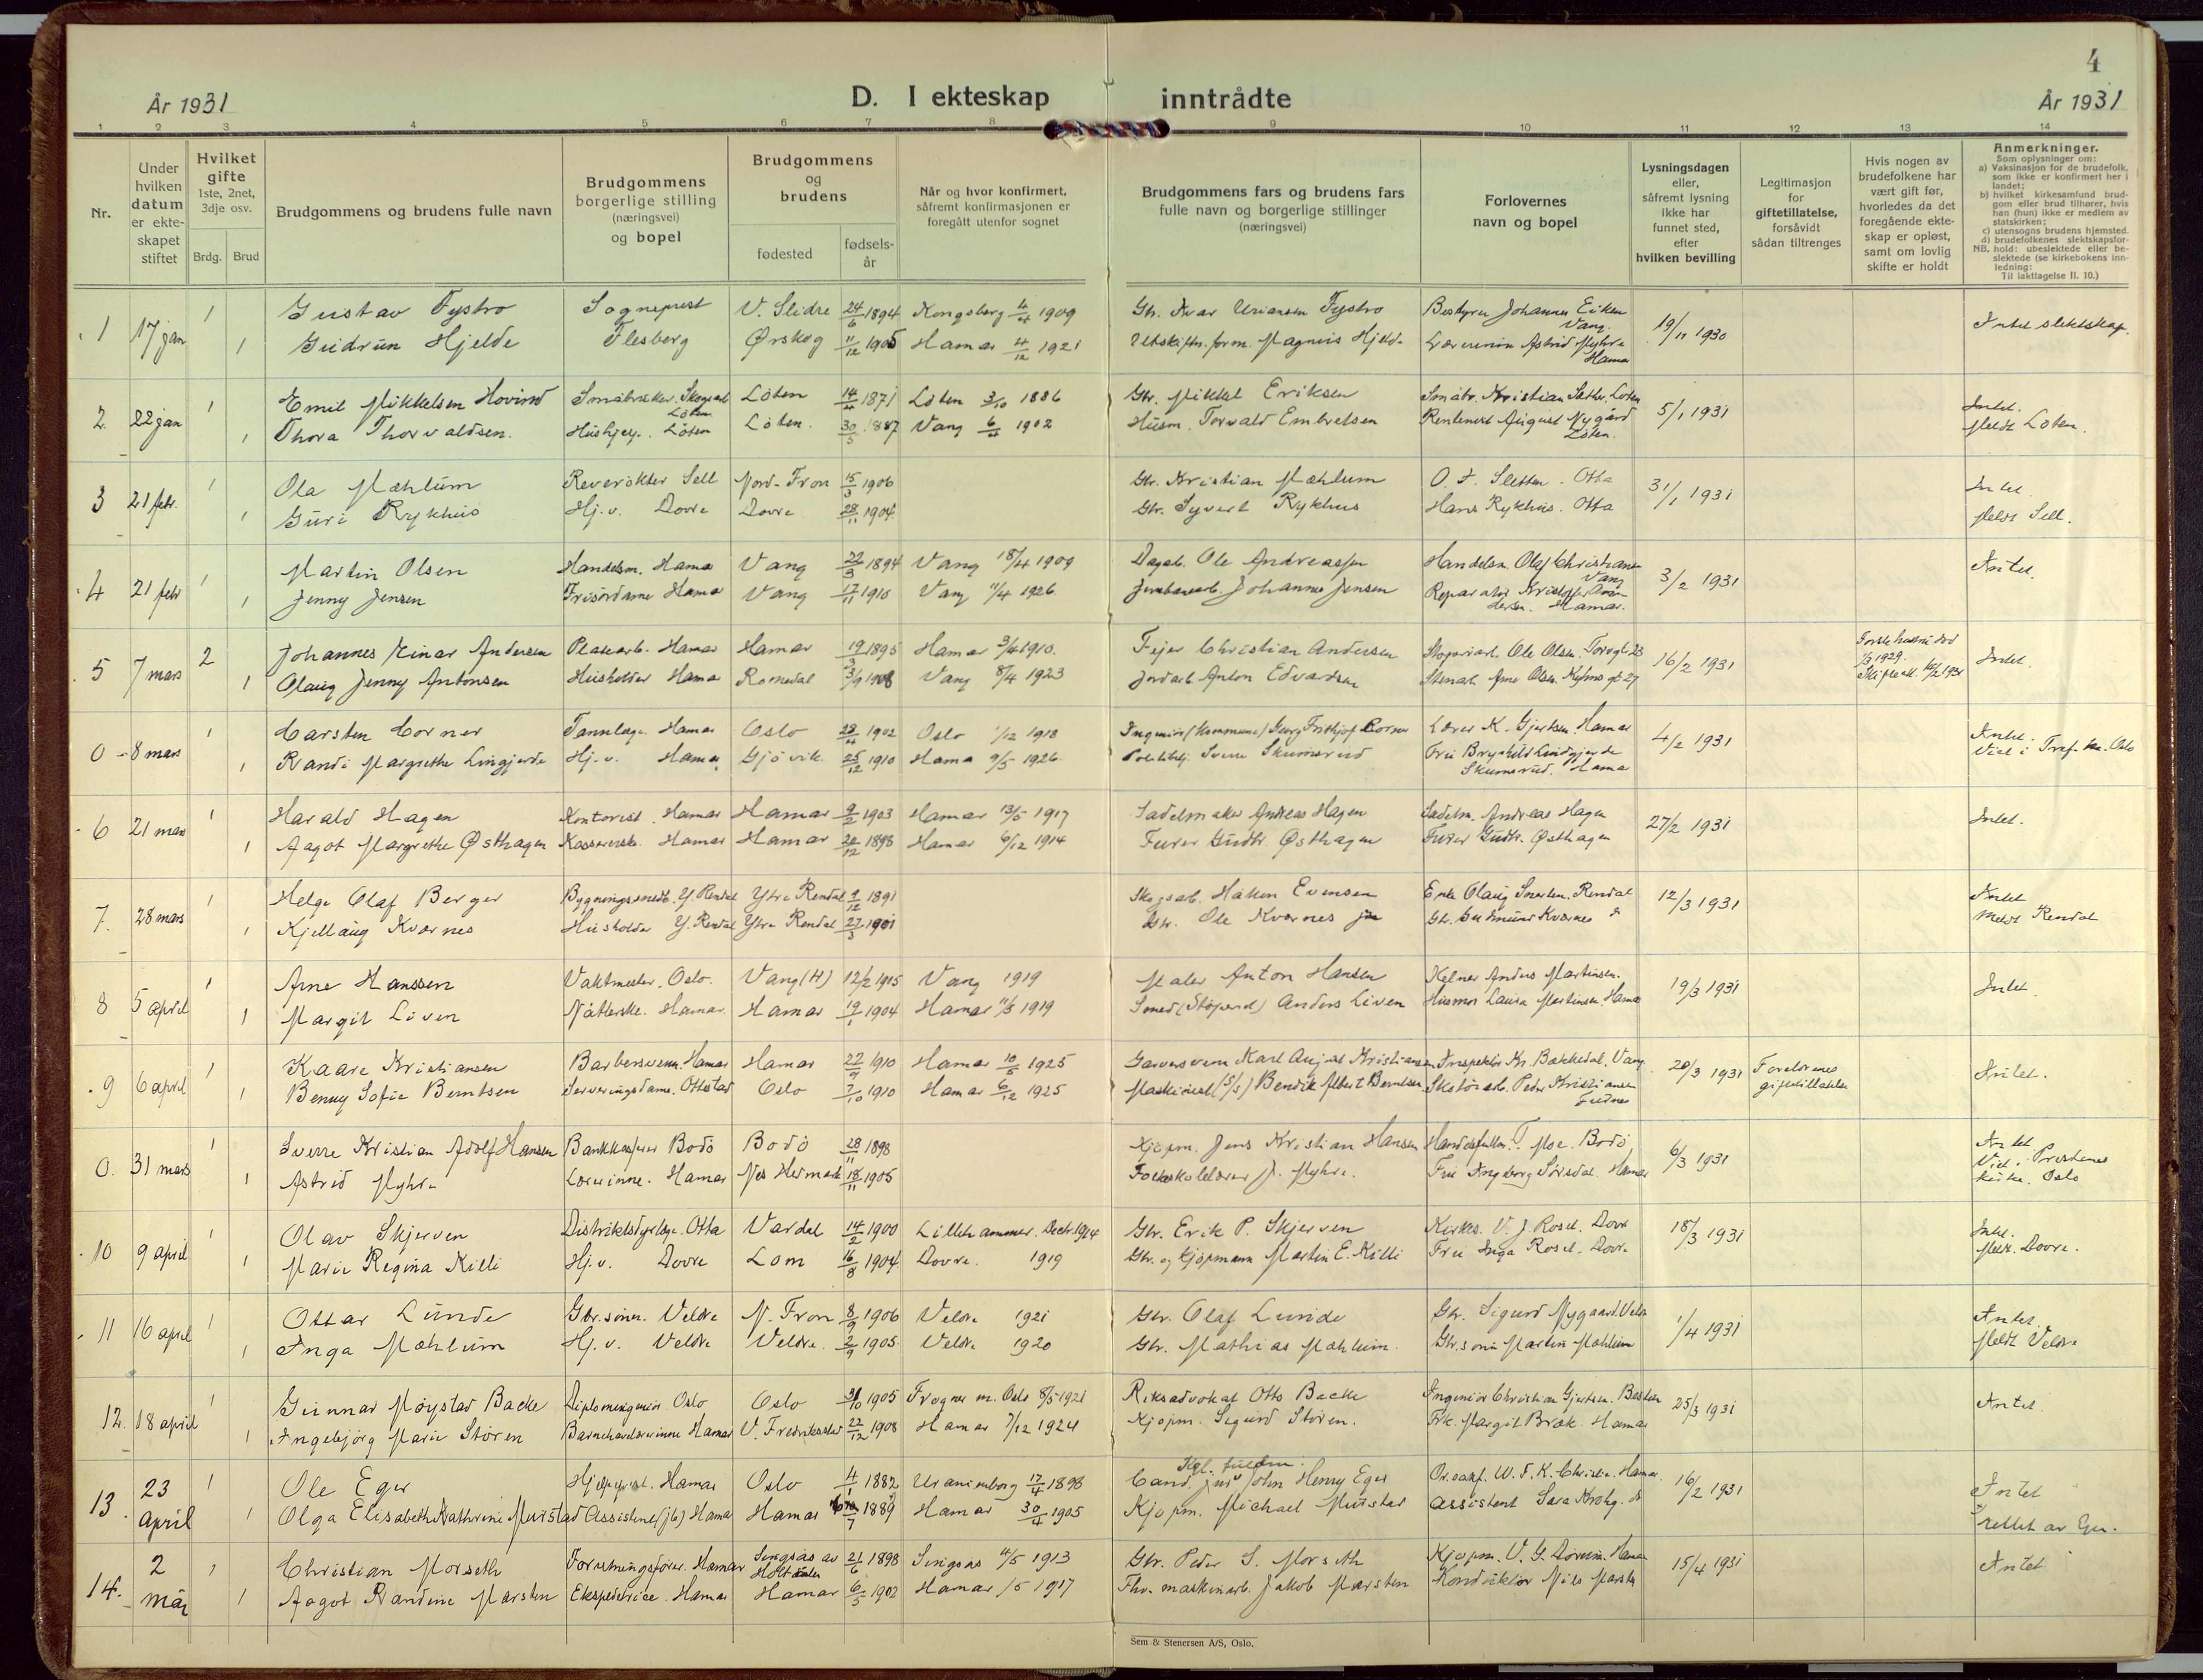 4
År 1931
D. I ekteskap inntrådte
År 1931
1 2 3 4 5 6 7 8 9 10 11 12 13 14
Nr.
Under hvilken datum er ekteskapet stiftet
Hvilket gifte 1ste, 2net, 3dje osv.
Brdg. Brud
Brudgommens og brudens fulle navn
Brudgommens borgerlige stilling (næringsvei) og bopel
Brudgommens og brudens
fødested
fødsels-år
Når og hvor konfirmert, såfremt konfirmasjonen er foregått utenfor sognet
Brudgommens fars og brudens fars fulle navn og borgerlige stillinger (næringsvei)
Forlovernes navn og bopel
Lysningsdagen eller, såfremt lysning ikke har funnet sted, efter hvilken bevilling
Legitimasjon for giftetillatelse, forsåvidt sådan tiltrenges
Hvis nogen av brudefolkene har vært gift før, hvorledes da det foregående ekteskap er opløst, samt om lovlig skifte er holdt
Anmerkninger.
Som oplysninger om:
a) Vaksinasjon for de brudefolk, som ikke er konfirmert her i landet;
b) hvilket kirkesamfund brudgom eller brud tilhører, hvis han (hun) ikke er medlem av statskirken;
c) utensogns brudens hjemsted.
d) brudefolkenes slektskapsforhold: ubeslektede eller beslektede (se kirkebokens innledning:
NB.
Til iakttagelse II. 10.)
1 17 jan 1 Gustav Fystro Sogneprest V. Slidre 24/6 1894 Kongsberg 4/4 1909 Gbr. Ivar Uriansen Fystro Bestyrer Johannes Eiken Vang. 19/11 1930 Intet slektskap.
1 Gudrun Hjelde Flesberg Ørskog 11/12 1905 Hamar 4/12 1921 Utskiftn.form. Magnus Hjelde Lærerinne Astrid Myhre Hamar
2 22 jan 1 Emil Mikkelsen Hovind Småbruker. Skogsarb Löten Löten 14/4 1871 Löten 3/10 1886 Gbr. Mikkel Eriksen Småbr. Kristian Sæther. Löten 5/1 1931 Intet.
1 Thora Thorvaldsen. Hushjelp. Löten Löten. 30/5 1887 Vang 6/4 1902 Husm. Torvald Embretsen Rentenist August Nygård Löten. Meldt Löten.
3 21 febr. 1 Ola Mæhlum Reverökter Sell Nord-Fron 15/3 1906 Gbr. Kristian Mæhlum O. F. Sletten. Otta 31/1 1931 Intet.
1 Guri Rykhus Hj. v. Dovre Dovre 28/11 1904 Gbr. Syvert Rykhus Hans Rykhus. Otta Meldt Sell.
4 21 febr 1 Martin Olsen Handelsm. Hamar Vang 22/3 1894 Vang 18/4 1909 Dagarb. Ole Andreassen Handelsm. Olaf Christiansen Vang 3/2 1931 Intet.
1 Jenny Jensen Frisördame Hamar Vang 17/11 1910 Vang 11/4 1926. Jernbanearb. Johannes Jensen Reparatör Kristoffer Andersen. Hamar.
5 7 mars 2 Johannes Einar Andersen Platearb. Hamar Hamar 19/3 1895 Hamar 3/4 1910. Feier Christian Andersen Ole Olsen. Torvgt. 23 16/2 1931 Første hustru död 1/3 1929. Intet.
1 Olaug Jenny Antonsen Husholder Hamar Romedal 3/9 1908 Vang 8/4 1923 Anton Edvardsen Arne Olsen. 27
0 8 mars 1 Carsten Corner Tannlæge. Hamar Oslo 28/4 1902 Oslo 1/12 1918 Ingeniör (Kommune) Georg Fritthjof Corner Lærer K. Gjertsen. Hamar 4/2 1931 Intet.
1 Randi Margrethe Lingjerde Hj. v. Hamar Gjövik 25/12 1910 Hamar 9/5 1926. Sverre Skumsrud Fru Brynhild Lindgjerde Skumsrud. Hamar Viet i Tref. ke. Oslo
6 21 mars 1 Harald Hagen Kontorist. Hamar Hamar 9/2 1903 Hamar 13/5 1917 Sadelmaker Andreas Hagen Sadelm. Andreas Hagen 27/2 1931 Intet.
1 Aagot Margrethe Østhagen Kassererske. Hamar Hamar 20/12 1898 Hamar 6/12 1914 Furer Gudbr. Østhagen Furer Gudbr. Østhagen
7. 28 mars 1 Helge Olaf Berger Bygningssnedk. Y. Rendal Ytre Rendal 9/12 1891 Skogsarb. Håkon Evensen Enke Olaug Rendal 12/3 1931 Intet
1 Kjellaug Kværnes Husholder Y. Rendal Ytre Rendal 27/3 1901 Gbr. Ole Kværnes jun Gbr. Gudmund Kværnes Meldt Rendal
8 5 april 1 Arne Hanssen Vaktmester. Oslo. Vang (H) 12/2 1915 Vang 1919 Maler Anton Hansen Kelner Anders Martinsen. 19/3 1931 Intet
1 Margit Liven Nåtlerske. Hamar. Hamar 19/1 1904 Hamar 11/5 1919 Smed (Stöperi) Anders Liven Husmor Laura Martinsen. Hamar
9 6 april 1 Kaare Kristiansen Barbersvenn. Hamar Hamar 22/9 1910 Hamar 10/5 1925 Garversvenn Karl August Kristiansen Inspektör Kr. Bækkedal. Vang. 20/3 1931 Foreldrenes giftetillatelse Intet.
1 Benny Sofie Berntsen Serveringsdame. Ottestad Oslo 7/10 1910 Hamar 6/12 1925 Maskinist (S/S) Bendik Albert Berntsen. Skotöiarb. Peder Kristiansen Furnes
0. 31 mars 1 Sverre Kristian Adolf Hansen Bankkasserer Bodö Bodö 28/11 1898 Kjöpm. Jens Kristian Hansen T. Moe. Bodö 6/3 1931 Intet
1 Astrid Myhre Lærerinne. Hamar Nes Hedmark 18/11 1905 Folkeskolelærer J. Myhre. Fru Ingeborg Sörisdal. Hamar Viet. Prestenes kirke. Oslo
10 9 april 1 Olav Skjerven Distriktsdyrlæge. Otta Vardal 14/2 1900 Lillehammer. Decbr. 1914 Gbr. Erik P. Skjerven Kirkes. V. J. Rosel. Dovre 18/3 1931 Intet.
1 Marie Regina Killi Hj. v. Dovre Lom 16/8 1904 Dovre. 1919 Gbr. og kjöpmann Martin E. Killi Fru Inga Rosel. Dovre Meldt. Dovre.
11 16 april 1 Ottar Lunde Gbr.sönn. Veldre N. Fron 8/9 1906 Veldre 1921 Gbr. Olaf Lunde Gbr. Sigurd Nygaard. Veldre 1/4 1931 Intet.
1 Inga Mæhlum Hj. v. Veldre Veldre. 2/9 1905. Veldre 1920 Gbr. Mathias Mæhlum. Gbr.sönn Martin Mæhlum Meldt Veldre
12. 18 april 1 Gunnar Möystad Backe Diplomingeniör. Oslo Oslo 31/10 1905 Frogner m. Oslo 8/5 1921 Riksadvokat Otto Backe Ingeniör Christian Gjertsen. 25/3 1931 Intet
1 Ingebjörg Marie Stören Hamar V. Fredrikstad 22/12 1908 Hamar 7/12 1924 Kjöpm. Sigurd Stören. Frk. Margit Bræk. Hamar
13. 23 april 1 Ole Eger Hjelpeprest. Hamar Oslo 4/1 1882 Uranienborg 17/4 1898 Cand. jur John Henry Eger W. F. K. Christie. Hamar. 16/2 1931 Intet
1 Olga Elisabeth Kathrine Murstad Assistent (jb) Hamar Hamar /7 1889 Hamar 30/4 1905 Kjöpm. Michael Murstad Assistent Sara Krohg. rettet av Eger.
14. 2 mai 1 Christian Morseth Forretningsförer. Hamar Singsås av Holtålen 21/6 1898 Singsås 4/5 1913 Gbr. Peder S. Morseth Kjöpm. V. G. Hamar 15/4 1931 Intet
1 Aagot Randine Marsten Ekspeditrice. Hamar Hamar 6/5 1902 Hamar /5 1917 Fhv. maskinarb. Jakob Marsten Konduktör Nils Marsten
Sem & Stenersen A/S, Oslo.